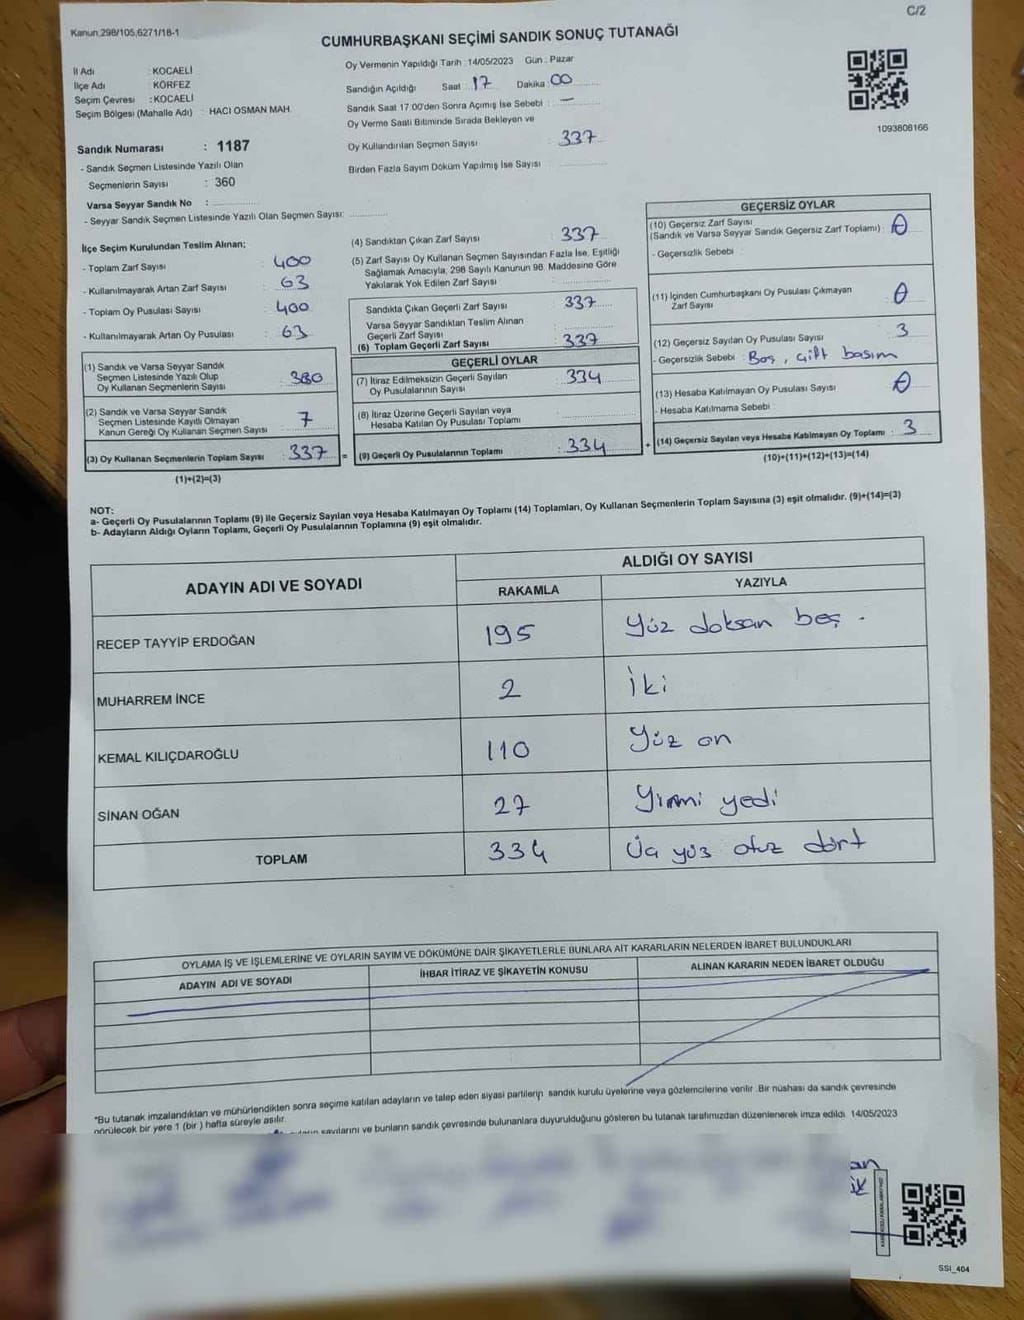 C/2
Kanun,298/105,6271/18-1
CUMHURBAŞKANI SEÇİMİ SANDIK SONUÇ TUTANAĞI
İl Adı : KOCAELİ
İlçe Adı : KÖRFEZ
Seçim Çevresi : KOCAELİ
Seçim Bölgesi (Mahalle Adı) : HACI OSMAN MAH.
Oy Vermenin Yapıldığı Tarih : 14/05/2023 Gün : Pazar
Sandığın Açıldığı Saat : 17 Dakika : 00
Sandık Saat 17:00'den Sonra Açılmış İse Sebebi : —
Oy Verme Saati Bitiminde Sırada Bekleyen ve
Oy Kullandırılan Seçmen Sayısı : 337
Birden Fazla Sayım Döküm Yapılmış İse Sayısı :
1093808166
Sandık Numarası : 1187
- Sandık Seçmen Listesinde Yazılı Olan
Seçmenlerin Sayısı : 360
Varsa Seyyar Sandık No :
- Seyyar Sandık Seçmen Listesinde Yazılı Olan Seçmen Sayısı:
İlçe Seçim Kurulundan Teslim Alınan;
- Toplam Zarf Sayısı : 400
- Kullanılmayarak Artan Zarf Sayısı : 63
- Toplam Oy Pusulası Sayısı : 400
- Kullanılmayarak Artan Oy Pusulası : 63
(1) Sandık ve Varsa Seyyar Sandık
Seçmen Listesinde Yazılı Olup
Oy Kullanan Seçmenlerin Sayısı : 330
(2) Sandık ve Varsa Seyyar Sandık
Seçmen Listesinde Kayıtlı Olmayan
Kanun Gereği Oy Kullanan Seçmen Sayısı : 7
(3) Oy Kullanan Seçmenlerin Toplam Sayısı : 337 =
(1)+(2)=(3)
(4) Sandıktan Çıkan Zarf Sayısı : 337
(5) Zarf Sayısı Oy Kullanan Seçmen Sayısından Fazla İse, Eşitliği
Sağlamak Amacıyla, 298 Sayılı Kanunun 98. Maddesine Göre
Yakılarak Yok Edilen Zarf Sayısı :
Sandıkta Çıkan Geçerli Zarf Sayısı : 337
Varsa Seyyar Sandıktan Teslim Alınan
Geçerli Zarf Sayısı :
(6) Toplam Geçerli Zarf Sayısı : 337
GEÇERLİ OYLAR
(7) İtiraz Edilmeksizin Geçerli Sayılan
Oy Pusulalarının Sayısı : 334
(8) İtiraz Üzerine Geçerli Sayılan veya
Hesaba Katılan Oy Pusulası Toplamı :
(9) Geçerli Oy Pusulalarının Toplamı : 334 +
GEÇERSİZ OYLAR
(10) Geçersiz Zarf Sayısı
(Sandık ve Varsa Seyyar Sandık Geçersiz Zarf Toplamı) : 0
- Geçersizlik Sebebi :
(11) İçinden Cumhurbaşkanı Oy Pusulası Çıkmayan
Zarf Sayısı : 0
(12) Geçersiz Sayılan Oy Pusulası Sayısı : 3
- Geçersizlik Sebebi : Boş, çift basım
(13) Hesaba Katılmayan Oy Pusulası Sayısı : 0
- Hesaba Katılmama Sebebi :
(14) Geçersiz Sayılan veya Hesaba Katılmayan Oy Toplamı : 3
(10)+(11)+(12)+(13)=(14)
NOT:
a- Geçerli Oy Pusulalarının Toplamı (9) ile Geçersiz Sayılan veya Hesaba Katılmayan Oy Toplamı (14) Toplamları, Oy Kullanan Seçmenlerin Toplam Sayısına (3) eşit olmalıdır. (9)+(14)=(3)
b- Adayların Aldığı Oyların Toplamı, Geçerli Oy Pusulalarının Toplamına (9) eşit olmalıdır.
ADAYIN ADI VE SOYADI
ALDIĞI OY SAYISI
RAKAMLA YAZIYLA
RECEP TAYYİP ERDOĞAN 195 Yüz doksan beş .
MUHARREM İNCE 2 İki
KEMAL KILIÇDAROĞLU 110 Yüz on
SİNAN OĞAN 27 Yirmi yedi
TOPLAM 334 Üç yüz otuz dört
OYLAMA İŞ VE İŞLEMLERİNE VE OYLARIN SAYIM VE DÖKÜMÜNE DAİR ŞİKAYETLERLE BUNLARA AİT KARARLARIN NELERDEN İBARET BULUNDUKLARI
ADAYIN ADI VE SOYADI İHBAR İTİRAZ VE ŞİKAYETİN KONUSU ALINAN KARARIN NEDEN İBARET OLDUĞU
*Bu tutanak imzalandıktan ve mühürlendikten sonra seçime katılan adayların ve talep eden siyasi partilerin sandık kurulu üyelerine veya gözlemcilerine verilir. Bir nüshası da sandık çevresinde
görülecek bir yere 1 (bir ) hafta süreyle asılır.
sayılarını ve bunların sandık çevresinde bulunanlara duyurulduğunu gösteren bu tutanak tarafımızdan düzenlenerek imza edildi. 14/05/2023
SSI_404